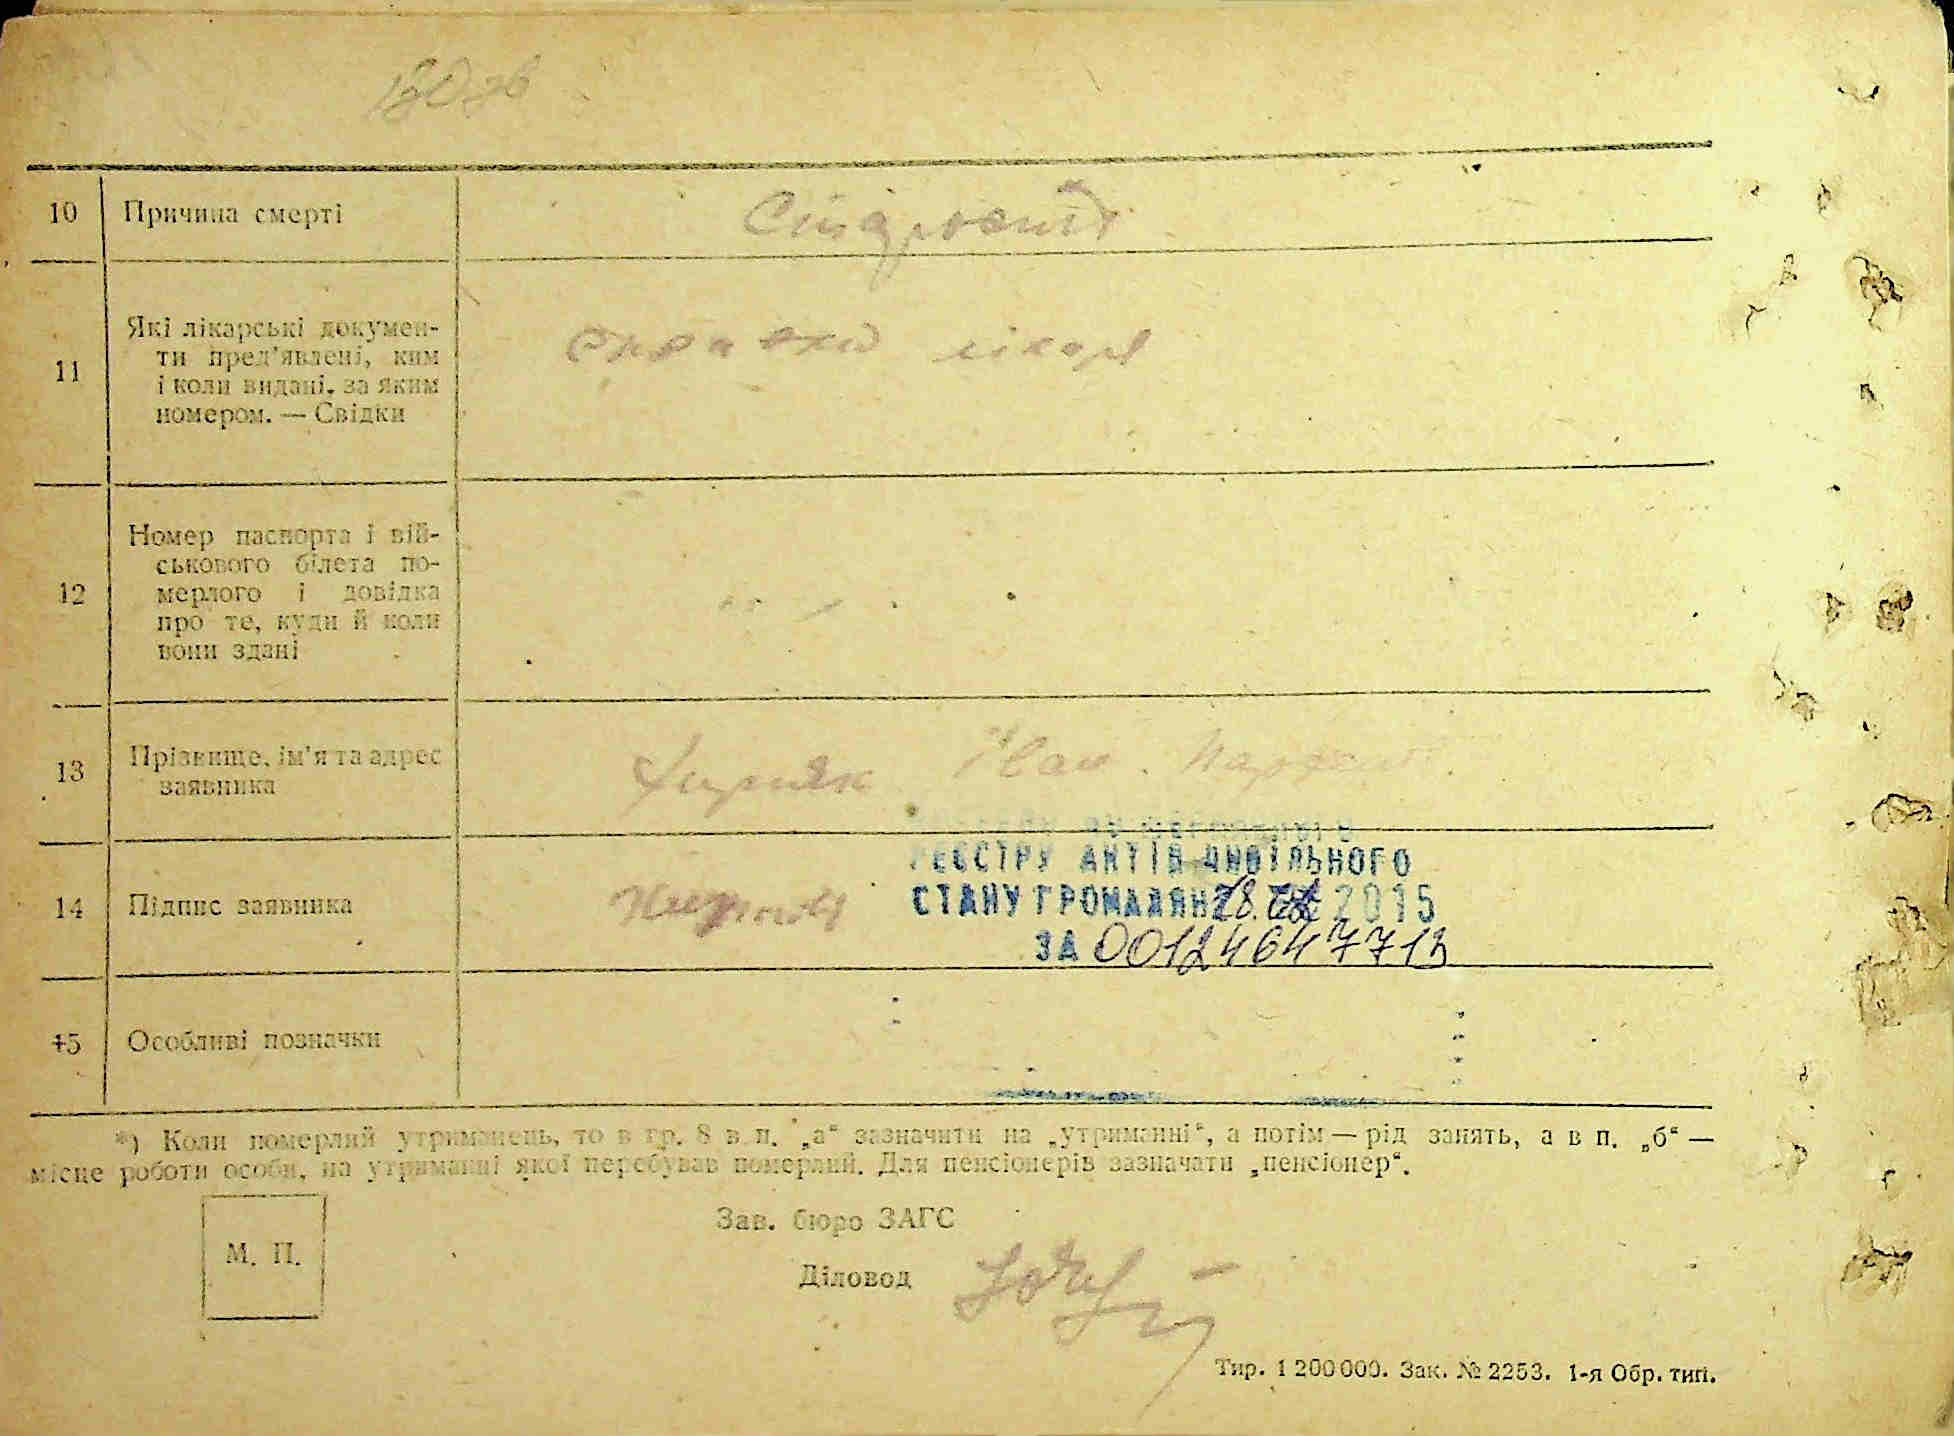 10 Причина смерті
11 Які лікарські докумен-
ти пред’явлені, ким
і коли видані, за яким
номером. — Свідки
справка лікаря
12 Номер паспорта і вій-
ськового білета по-
мерлого і довідка
про те, куди й коли
вони здані
13 Прізвище, ім’я та адрес
заявника
Іван
14 Підпис заявника
РЕЄСТРУ АКТІВ ЦИВІЛЬНОГО
СТАНУ ГРОМАДЯН 2015
ЗА 00124647713
15 Особливі позначки
*) Коли померлий утриманець, то в гр. 8 в п. „а“ зазначити на „утриманні“, а потім — рід занять, а в п. „б“ —
місце роботи особи, на утриманні якої перебував померлий. Для пенсіонерів зазначати „пенсіонер“.
М. П.
Зав. бюро ЗАГС
Діловод
Тир. 1 200 000. Зак. № 2253. 1-я Обр. тип.